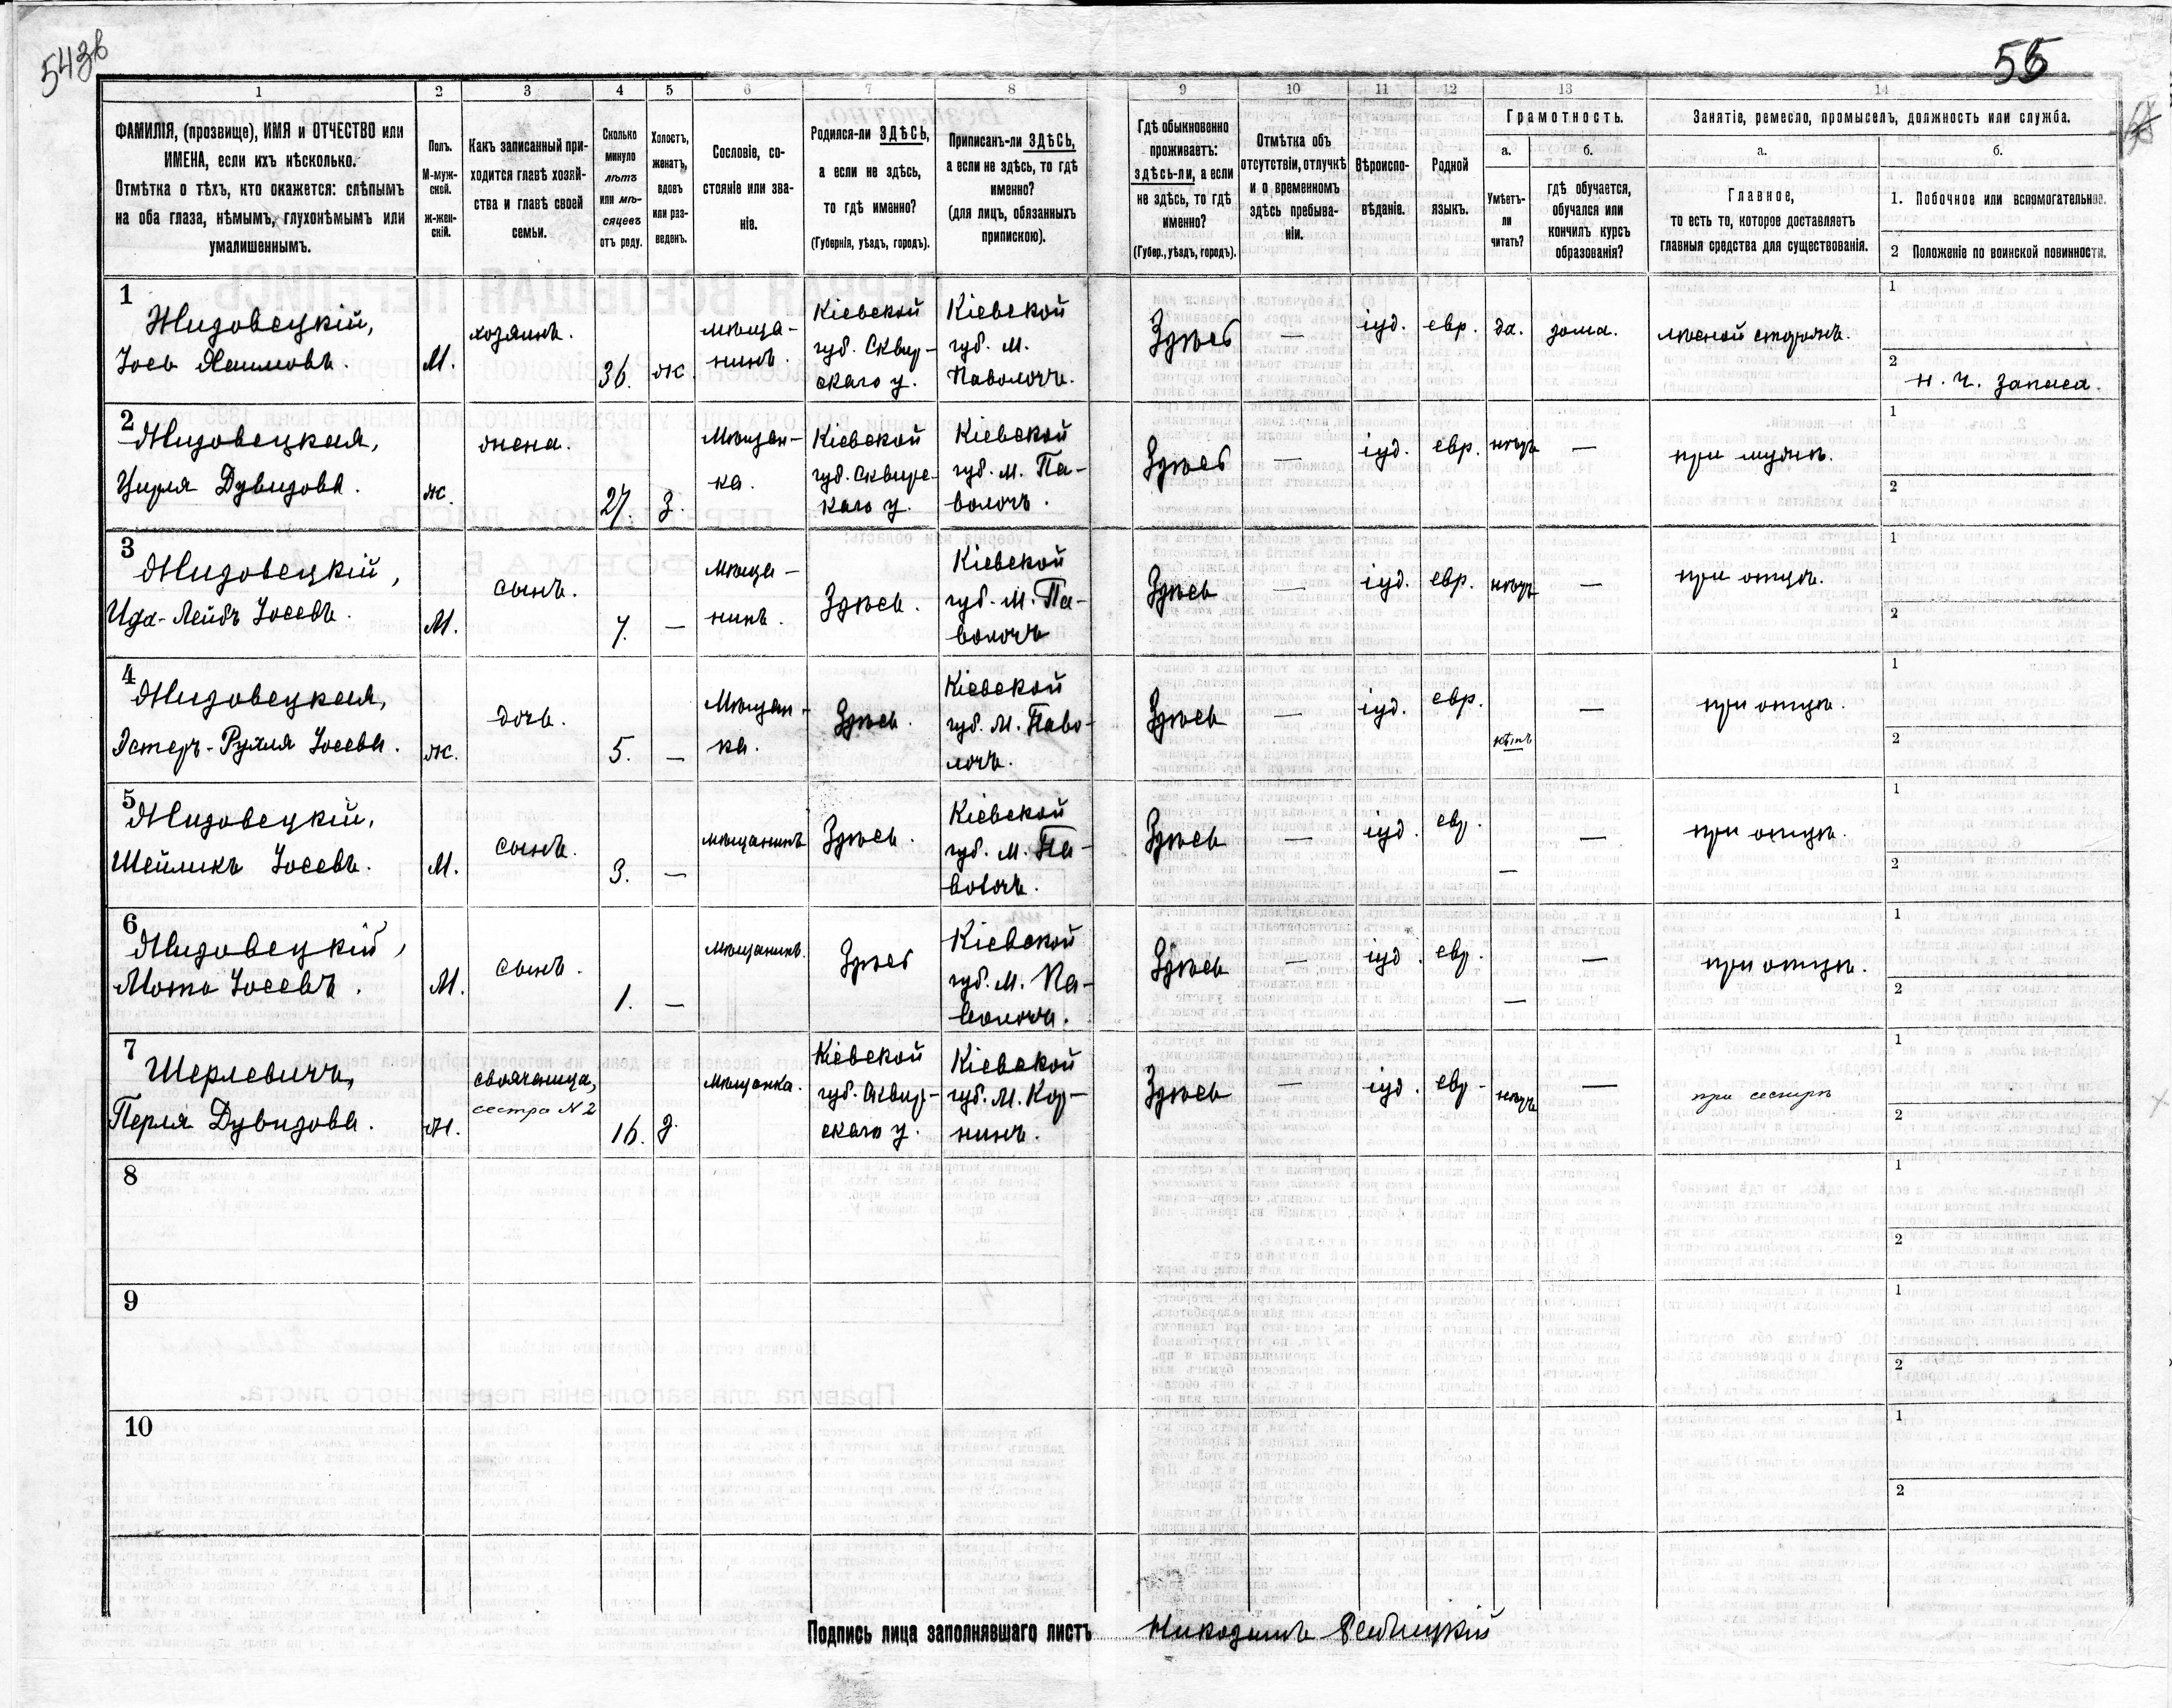 543б
55
1
2
3
4
5
6
7
8
9
10
11
12
13
14
ФАМИЛІЯ, (прозвище), ИМЯ и ОТЧЕСТВО или
ИМЕНА, если ихъ нѣсколько.
Отмѣтка о тѣхъ, кто окажется: слѣпымъ
на оба глаза, нѣмымъ, глухонѣмымъ или
умалишеннымъ.
Полъ.
М-муж-
ской.
ж-жен-
скій.
Какъ записанный при-
ходится главѣ хозяй-
ства и главѣ своей
семьи.
Сколько
минуло
лѣтъ
или мѣ-
сяцевъ
отъ роду.
Холостъ,
женатъ,
вдовъ
или раз-
веденъ.
Сословіе, со-
стояніе или зва-
ніе.
Родился-ли ЗДѢСЬ,
а если не здѣсь,
то гдѣ именно?
(Губернія, уѣздъ, городъ).
Приписанъ-ли ЗДѢСЬ,
а если не здѣсь, то гдѣ
именно?
(для лицъ, обязанныхъ
припискою).
Гдѣ обыкновенно
проживаетъ:
здѣсь-ли, а если
не здѣсь, то гдѣ
именно?
(Губер., уѣздъ, городъ).
Отмѣтка объ
отсутствіи, отлучкѣ
и о временномъ
здѣсь пребыва-
ніи.
Вѣроиспо-
вѣданіе.
Родной
языкъ.
Грамотность.
а.
Умѣетъ-
ли
читать?
б.
гдѣ обучается,
обучался или
кончилъ курсъ
образованія?
Занятіе, ремесло, промыселъ, должность или служба.
а.
Главное,
то есть то, которое доставляетъ
главныя средства для существованія.
б.
1. Побочное или вспомогательное.
2 Положеніе по воинской повинности.
1
Жидовецкій,
Іось Хаимовъ.
М.
хозяинъ.
36.
ж.
мѣща-
нинъ.
Кіевской
губ. Сквир-
скаго у.
Кіевской
губ. м.
Паволочь.
Здѣсь
—
іуд.
евр.
да.
дома.
лѣсной сторожъ.
1
2
н. ч. запаса.
2
Жидовецкая,
Цирля Дувидова.
ж.
жена.
27.
з.
Мѣщан-
ка.
Кіевской
губ. Сквирс-
каго у.
Кіевской
губ. м. Па-
волочь.
Здѣсь
—
іуд.
евр.
нѣтъ
—
при мужѣ.
1
2
3
Жидовецкій,
Ида-Лейбъ Іосевъ.
М.
сынъ.
7.
—
Мѣща-
нинъ.
Здѣсь.
Кіевской
губ. м. Па-
волочь
Здѣсь
—
іуд.
евр.
нѣтъ
—
при отцѣ.
1
2
4
Жидовецкая,
Эстеръ-Рухля Іосева.
ж.
дочь.
5.
—
Мѣщан-
ка.
Здѣсь.
Кіевской
губ. м. Паво-
лочь.
Здѣсь
—
іуд.
евр.
нѣтъ
—
при отцѣ.
1
2
5
Жидовецкій,
Шейликъ Іосевъ.
М.
сынъ.
3.
—
мѣщанинъ
Здѣсь.
Кіевской
губ. м. Па-
волочь.
Здѣсь
—
іуд.
евр.
—
—
при отцѣ.
1
2
6
Жидовецкій,
Мотю Іосевъ.
М.
сынъ.
1.
—
мѣщанинъ.
Здѣсь
Кіевской
губ. м. Па-
волочь.
Здѣсь
—
іуд.
евр.
—
—
при отцѣ.
1
2
7
Шерлевичъ,
Перля Дувидова.
ж.
своячница,
сестра N 2
16.
д.
Мѣщанка.
Кіевской
губ. Сквир-
скаго у.
Кіевской
губ. м. Кор-
нинъ.
Здѣсь
—
іуд.
евр.
нѣтъ
—
при сестрѣ
1
2
8
1
2
9
1
2
10
1
2
Подпись лица заполнявшаго листъ
Никодимъ